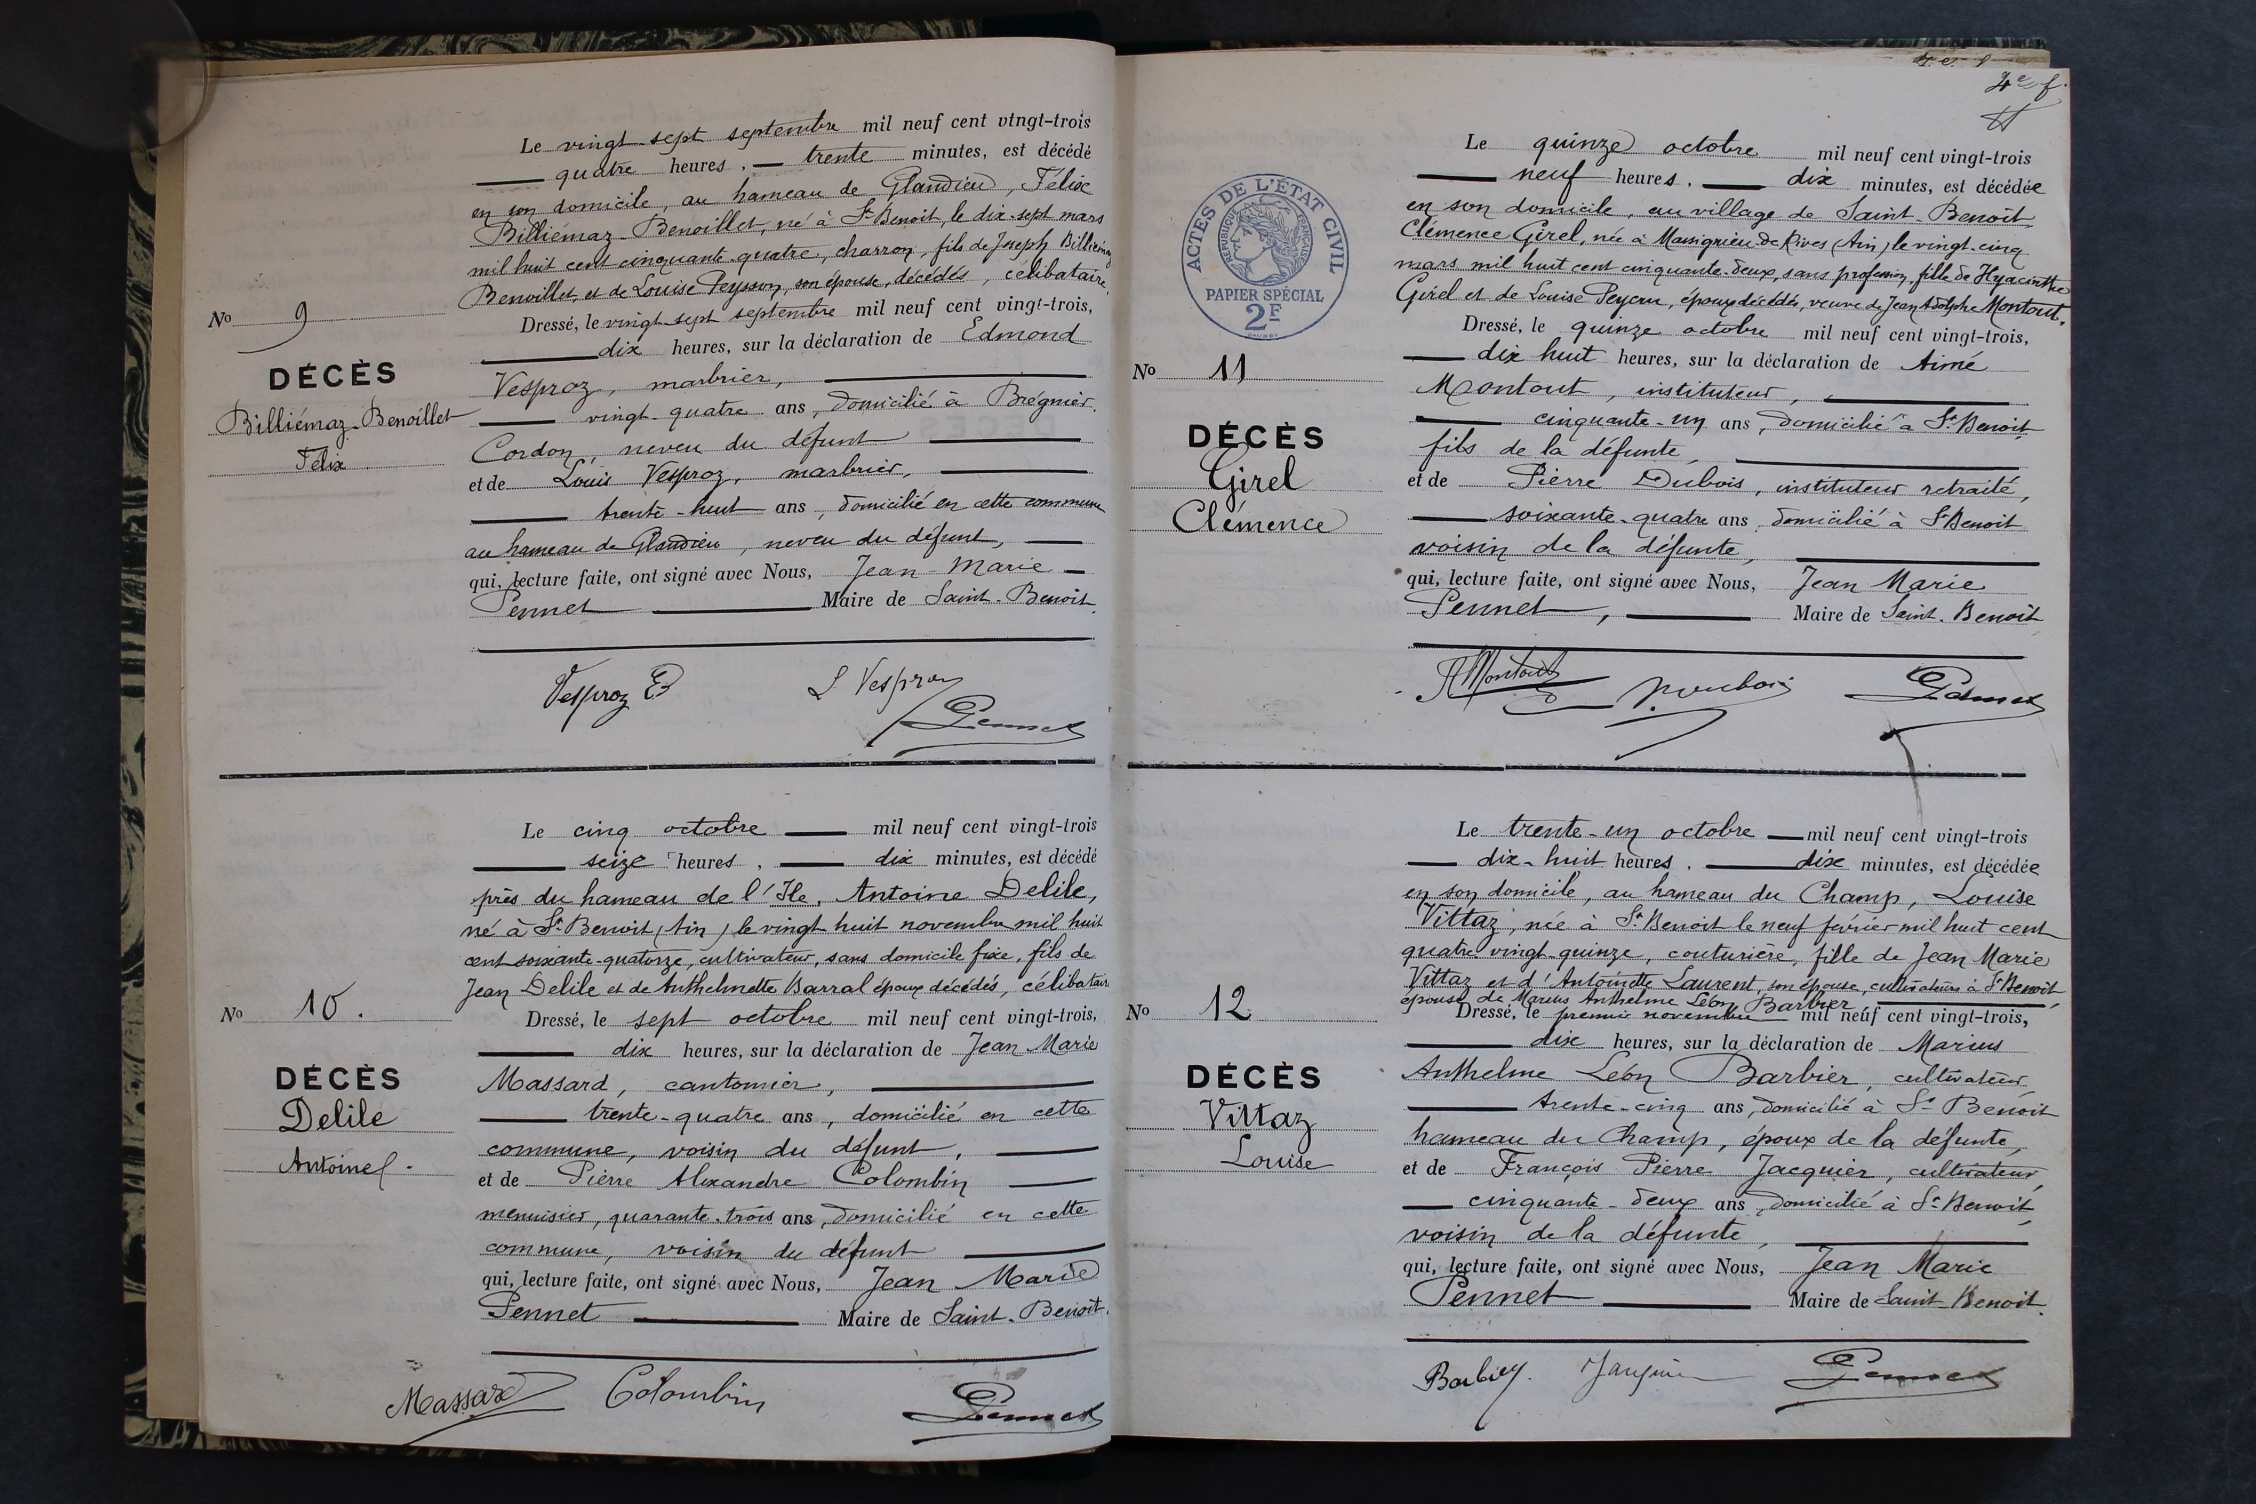 Le vingt-sept septembre mil neuf cent vingt-trois
quatre heures. trente minutes, est décédé
en son domicile, au hameau de Glandieu, Félix
Billiémaz-Benoillet, né à St Benoit, le dix-sept mars
mil huit cent cinquante-quatre, charron, fils de Joseph Billiémaz
Benoillet et de Louise Peysson, son épouse, décédés, célibataire.
No 9
DÉCÈS
Billiémaz-Benoillet
Félix
Dressé, le vingt-sept septembre mil neuf cent vingt-trois,
dix heures, sur la déclaration de Edmond
Vesproz, marbrier,
vingt-quatre ans, domicilié à Brégnier.
Cordon, neveu du défunt
et de Louis Vesproz, marbrier,
trente-huit ans, domicilié en cette commune
au hameau de Glandieu, neveu du défunt,
qui, lecture faite, ont signé avec Nous, Jean Marie
Pennet Maire de Saint-Benoit.
Vesproz E L Vesproz
Pennet
Le cinq octobre mil neuf cent vingt-trois
seize heures, dix minutes, est décédé
près du hameau de l'Ile, Antoine Delile,
né à St Benoit (Ain) le vingt huit novembre mil huit
cent soixante-quatorze, cultivateur, sans domicile fixe, fils de
Jean Delile et de Anthelmette Barral époux décédés, célibataire
No 10.
DÉCÈS
Delile
Antoine
Dressé, le sept octobre mil neuf cent vingt-trois,
dix heures, sur la déclaration de Jean Marie
Massard, cantonnier,
trente-quatre ans, domicilié en cette
commune, voisin du défunt,
et de Pierre Alexandre Colombin
menuisier, quarante-trois ans, domicilié en cette
commune, voisin du défunt
qui, lecture faite, ont signé avec Nous, Jean Marie
Pennet Maire de Saint-Benoit.
Massard Colombin Pennet
4e f.
ACTES DE L'ÉTAT CIVIL
RÉPUBLIQUE FRANÇAISE
PAPIER SPÉCIAL
2F
Le quinze octobre mil neuf cent vingt-trois
neuf heures. dix minutes, est décédée
en son domicile, au village de Saint-Benoit
Clémence Girel, née à Massignieu de Rives (Ain) le vingt-cinq
mars mil huit cent cinquante-deux, sans profession, fille de Hyacinthe
Girel et de Louise Peycru, époux décédés, veuve de Jean Adolphe Montout.
No 11
DÉCÈS
Girel
Clémence
Dressé, le quinze octobre mil neuf cent vingt-trois,
dix huit heures, sur la déclaration de Aimé
Montout, instituteur,
cinquante-un ans, domicilié à St Benoit
fils de la défunte,
et de Pierre Dubois, instituteur retraité,
soixante-quatre ans domicilié à St Benoit
voisin de la défunte,
qui, lecture faite, ont signé avec Nous, Jean Marie
Pennet, Maire de Saint-Benoit
A Montout P. Dubois Pennet
Le trente-un octobre mil neuf cent vingt-trois
dix-huit heures. dix minutes, est décédée
en son domicile, au hameau du Champ, Louise
Vittaz, née à St Benoit le neuf février mil huit cent
quatre vingt-quinze, couturière, fille de Jean Marie
Vittaz et d'Antoinette Laurent, son épouse, cultivateurs à St Benoit
épouse de Marius Anthelme Léon Barbier
No 12
DÉCÈS
Vittaz
Louise
Dressé, le premier novembre mil neuf cent vingt-trois,
dix heures, sur la déclaration de Marius
Anthelme Léon Barbier, cultivateur
trente-cinq ans, domicilié à St Benoit
hameau du Champ, époux de la défunte,
et de François Pierre Jacquier, cultivateur,
cinquante-deux ans, domicilié à St Benoit,
voisin de la défunte,
qui, lecture faite, ont signé avec Nous, Jean Marie
Pennet Maire de Saint-Benoit.
Barbier. Jacquier Pennet